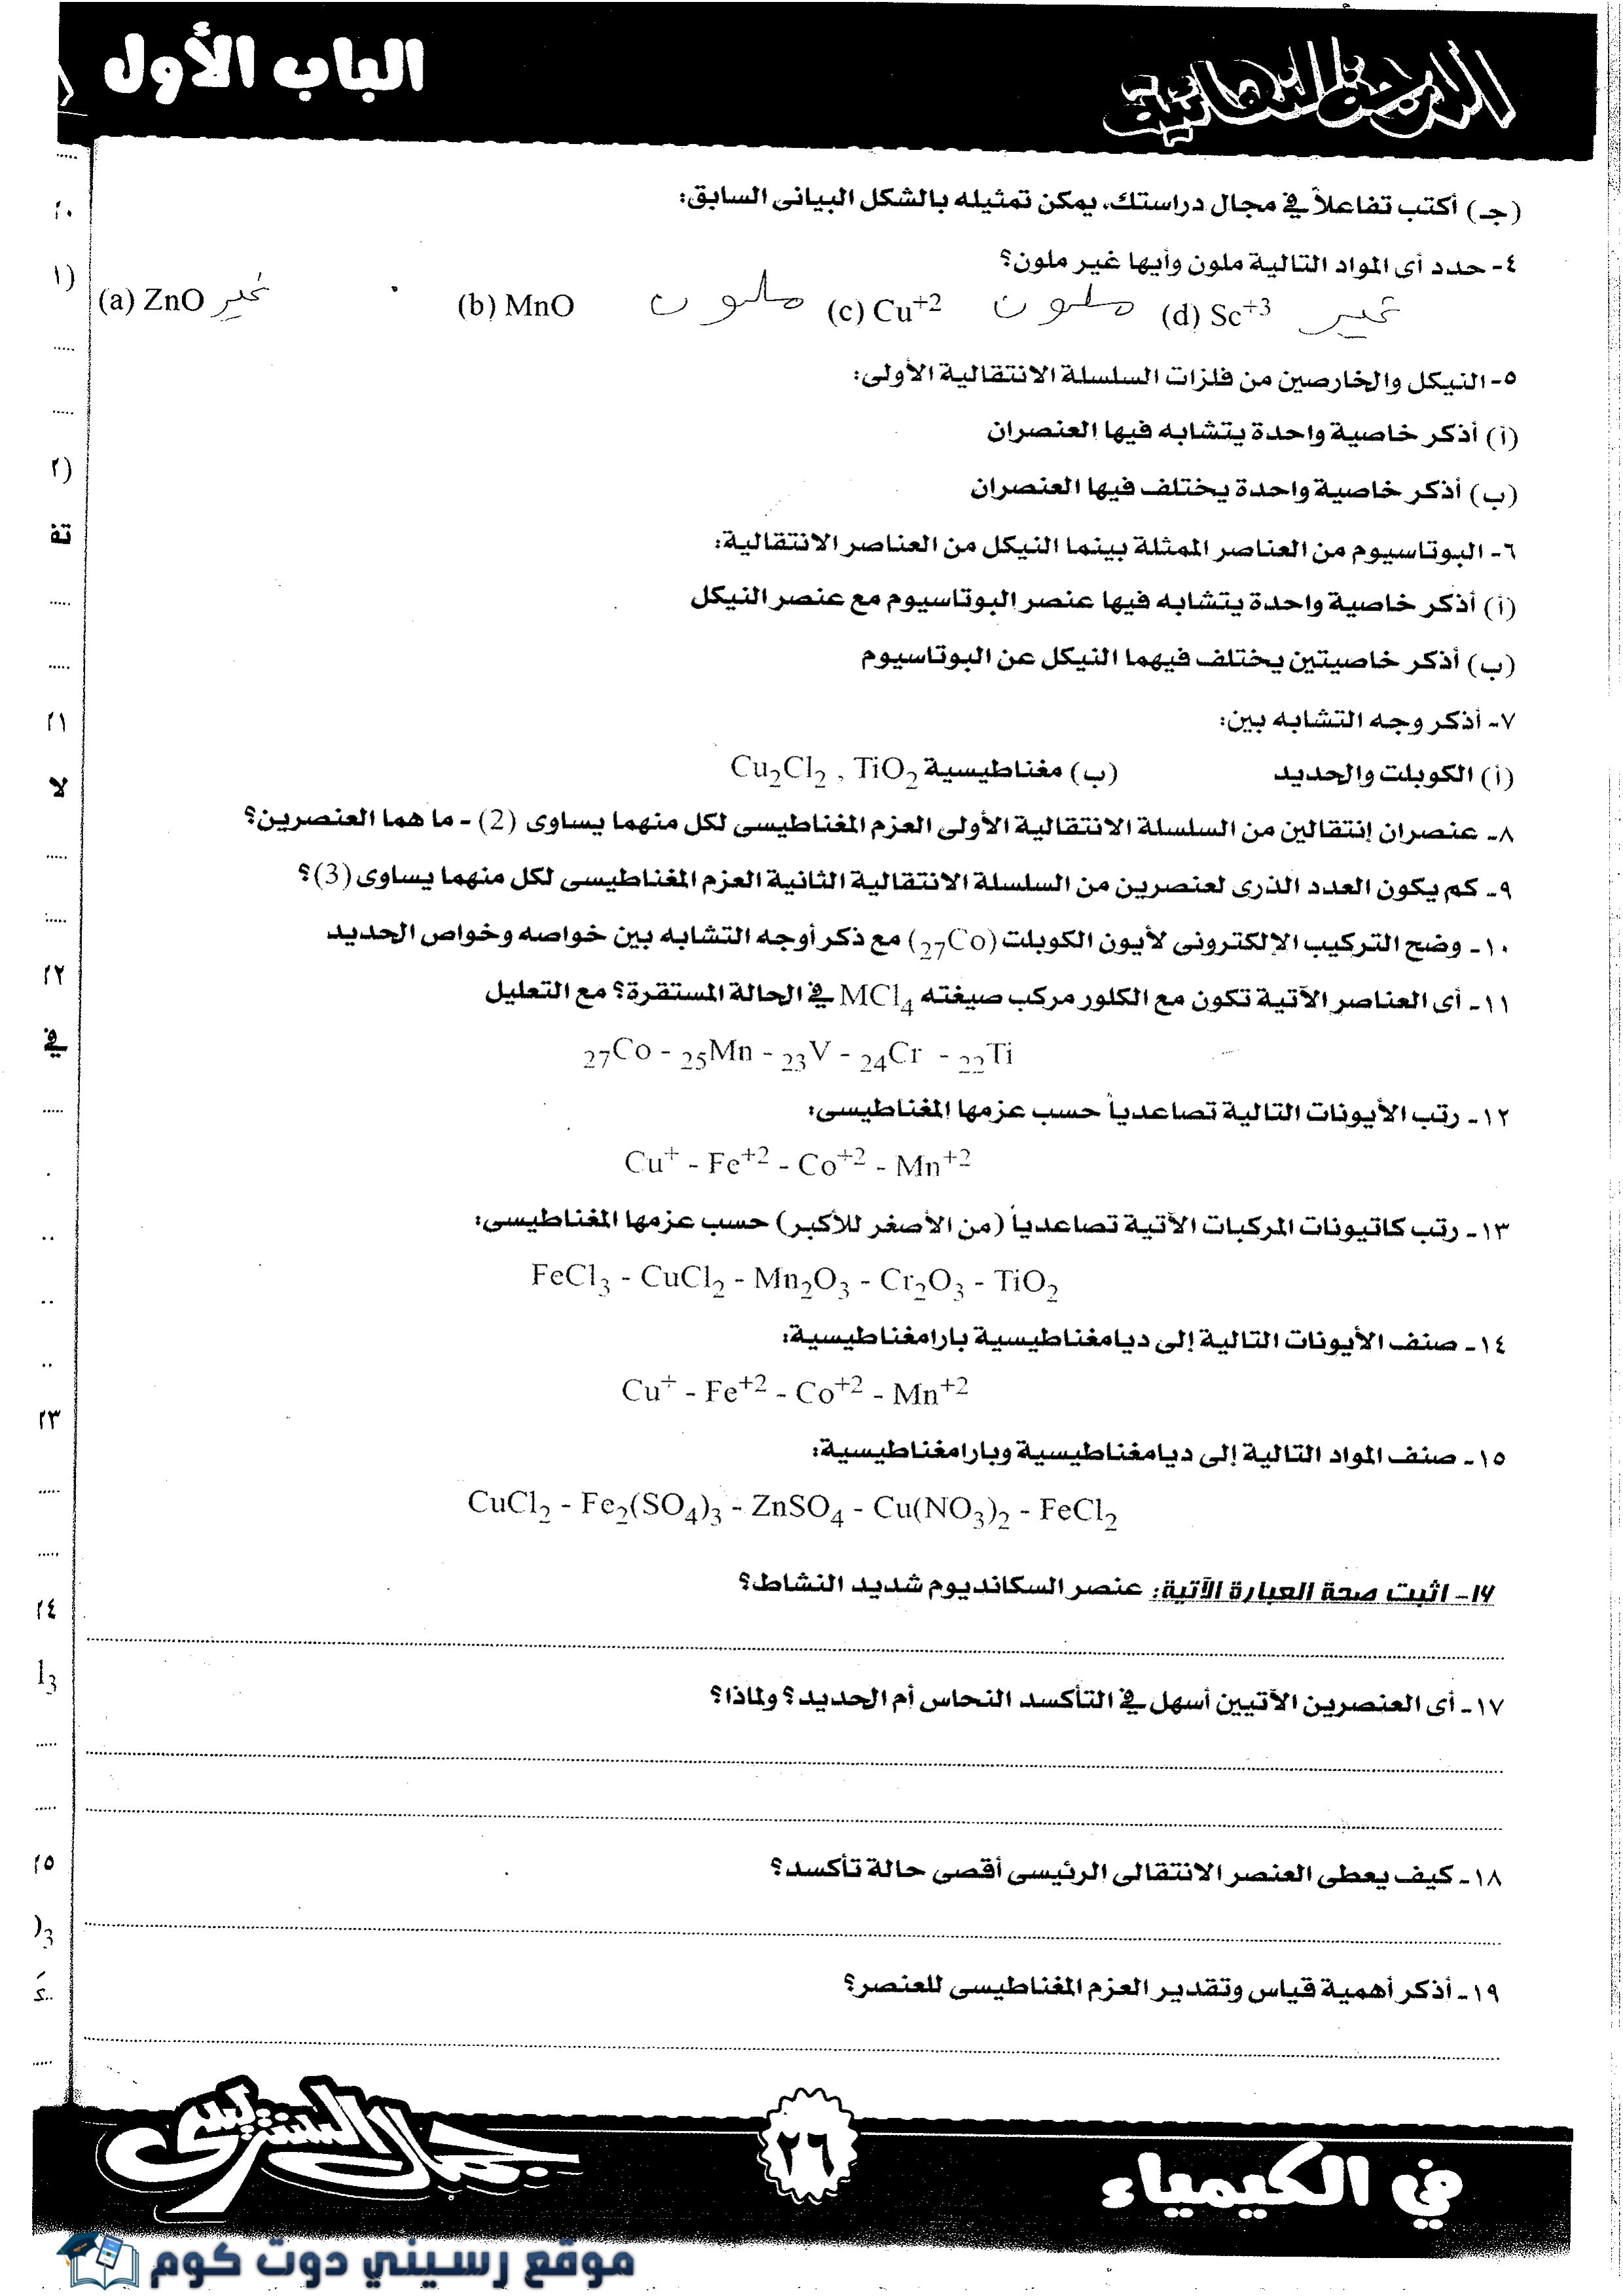 الباب الأول
الدرجة النهائية
(جـ) أكتب تفاعلاً في مجال دراستك، يمكن تمثيله بالشكل البيانى السابق:
٤- حدد أى المواد التالية ملون وأيها غير ملون؟
(a) ZnO غير (b) MnO ملون (c) Cu⁺² ملون (d) Sc⁺³ غير
٥- النيكل والخارصين من فلزات السلسلة الانتقالية الأولى:
(أ) أذكر خاصية واحدة يتشابه فيها العنصران
(ب) أذكر خاصية واحدة يختلف فيها العنصران
٦- البوتاسيوم من العناصر الممثلة بينما النيكل من العناصر الانتقالية:
(أ) أذكر خاصية واحدة يتشابه فيها عنصر البوتاسيوم مع عنصر النيكل
(ب) أذكر خاصيتين يختلف فيهما النيكل عن البوتاسيوم
٧- أذكر وجه التشابه بين:
(أ) الكوبلت والحديد (ب) مغناطيسية Cu₂Cl₂ , TiO₂
٨- عنصران إنتقالين من السلسلة الانتقالية الأولى العزم المغناطيسى لكل منهما يساوى (2) - ما هما العنصرين؟
٩- كم يكون العدد الذرى لعنصرين من السلسلة الانتقالية الثانية العزم المغناطيسى لكل منهما يساوى (3)؟
١٠- وضح التركيب الإلكترونى لأيون الكوبلت (₂₇Co) مع ذكر أوجه التشابه بين خواصه وخواص الحديد
١١- أى العناصر الآتية تكون مع الكلور مركب صيغته MCl₄ في الحالة المستقرة؟ مع التعليل
₂₇Co - ₂₅Mn - ₂₃V - ₂₄Cr - ₂₂Ti
١٢- رتب الأيونات التالية تصاعدياً حسب عزمها المغناطيسى:
Cu⁺ - Fe⁺² - Co⁺² - Mn⁺²
١٣- رتب كاتيونات المركبات الآتية تصاعدياً (من الأصغر للأكبر) حسب عزمها المغناطيسى:
FeCl₃ - CuCl₂ - Mn₂O₃ - Cr₂O₃ - TiO₂
١٤- صنف الأيونات التالية إلى ديامغناطيسية بارامغناطيسية:
Cu⁺ - Fe⁺² - Co⁺² - Mn⁺²
١٥- صنف المواد التالية إلى ديامغناطيسية وبارامغناطيسية:
CuCl₂ - Fe₂(SO₄)₃ - ZnSO₄ - Cu(NO₃)₂ - FeCl₂
١٦- اثبت صحة العبارة الآتية: عنصر السكانديوم شديد النشاط؟
١٧- أى العنصرين الآتيين أسهل في التأكسد النحاس أم الحديد؟ ولماذا؟
١٨- كيف يعطى العنصر الانتقالى الرئيسى أقصى حالة تأكسد؟
١٩- أذكر أهمية قياس وتقدير العزم المغناطيسى للعنصر؟
في الكيمياء
٢٦
جمال السنتريسى
موقع رسيني دوت كوم